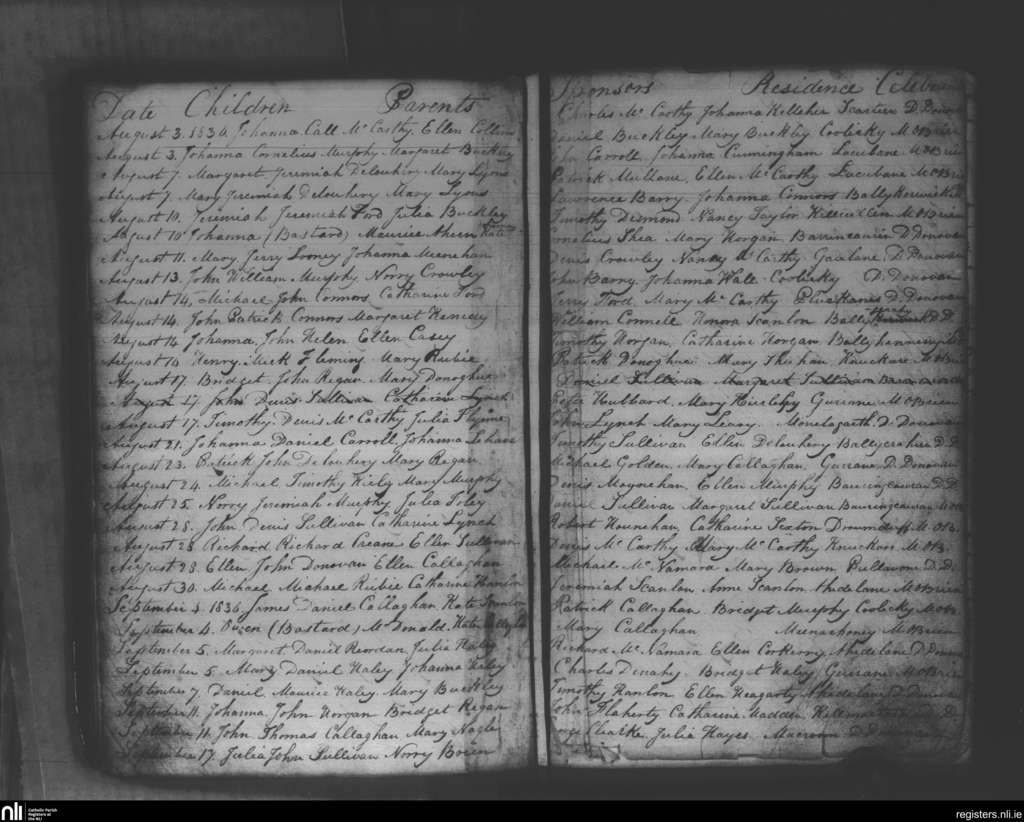 Date Children Parents
August 3. 1836 Johanna Call McCarthy. Ellen Collins
August 3. Johanna Cornelius Murphy Margaret Buckley
August 7. Margaret Jeremiah Delouhery Mary Lyons
August 7. Mary Jeremiah Delouhery Mary Lyons
August 10. Jeremiah Jeremiah Ford Julia Buckley
August 10 Johanna (Bastard) Maurice Ahern Kate
August 11. Mary, Jerry Looney Johanna Meenehan
August 13. John William Murphy Norry Crowley
August 14, Michael John Connors Catharine Ford
August 14. John Patrick Connors Margaret Kenedy
August 14 Johanna, John Helen Ellen Casey
August 14 Henry, Mick Fleming Mary Rubie
August 17. Bridget, John Regan. Mary Donoghue
August 17. John Denis Sullivan Catharine Lynch
August 17. Timothy. Denis McCarthy Julia Flynn
August 21. Johanna Daniel Carroll Johanna Lehane
August 23. Patrick John Delouhery Mary Regan
August 24. Michael Timothy Kirby Mary Murphy
August 25. Norry Jeremiah Murphy Julia Foley
August 28. John Denis Sullivan Catharine Lynch
August 28 Richard Richard Creane Ellen Sullivan
August 28. Ellen John Donovan Ellen Callaghan
August 30. Michael Michael Rubie Catharine Hanlon
September 4. 1836. James Daniel Callaghan Kate Scanlon
September 4. Owen (Bastard) McDonald. Kate
September 5. Margaret Daniel Reardan Julia Haley
September 5 Mary Daniel Haley Johanna Haley
September 7. Daniel Maurice Haley Mary Buckley
September 11. Johanna John Horgan Bridget Regan
September 11. John Thomas Callaghan Mary Nagle
September 17. Julia John Sullivan Norry Brien
Sponsors Residence
Charles McCarthy Johanna Kelleher D. Donovan
Daniel Buckley Mary Buckley Coolicky M. OBrien
John Carroll, Johanna Cunningham Lacubane M OBrien
Patrick Mullane, Ellen McCarthy Lacubane M OBrien
Lawrence Barry, Johanna Connors
Timothy Desmond. Nancy Taylor M. OBrien
Cornelius Shea Mary Horgan, D. Donovan
Denis Crowley Nancy McCarthy D. Donovan
John Barry. Johanna Wall. Coolicky D. Donovan
Jerry Ford. Mary McCarthy D. Donovan
William Connell Honora Scanlon D.D.
Timothy Horgan, Catharine Horgan
Patrick Donoghue Mary Sheehan Knuckane M OBrien
Daniel Sullivan Margaret Sullivan
Peter Hubbard, Mary Hurley Gurrane M OBrien
John Lynch Mary Leary. D. Donovan
Timothy Sullivan Ellen Delouhery D. D.
Michael Golden, Mary Callaghan, Gurrane D. Donovan
Denis Ellen Murphy D.D.
Daniel Sullivan Margaret Sullivan
Robert Catharine Sexton M OB.
Denis McCarthy Mary McCarthy Knuckane M OB.
Michael McNamara Mary Brown D.D.
Jeremiah Scanlon Anne Scanlon Ahidelane M OBrien
Patrick Callaghan. Bridget Murphy Coolicky M OB
Mary Callaghan M. OBrien
Richard McNamara Ellen Corkerry Ahidelane D. Donovan
Charles Denahy. Bridget Haley Gurrane M OBrien
Timothy Hanlon Ellen Heagarty Ahidelane D. Donovan
John Flaherty Catharine Madden
Clarke Julia Hayes. Macroom D. Donovan
nli Catholic Parish
Registers at
the NLI
registers.nli.ie